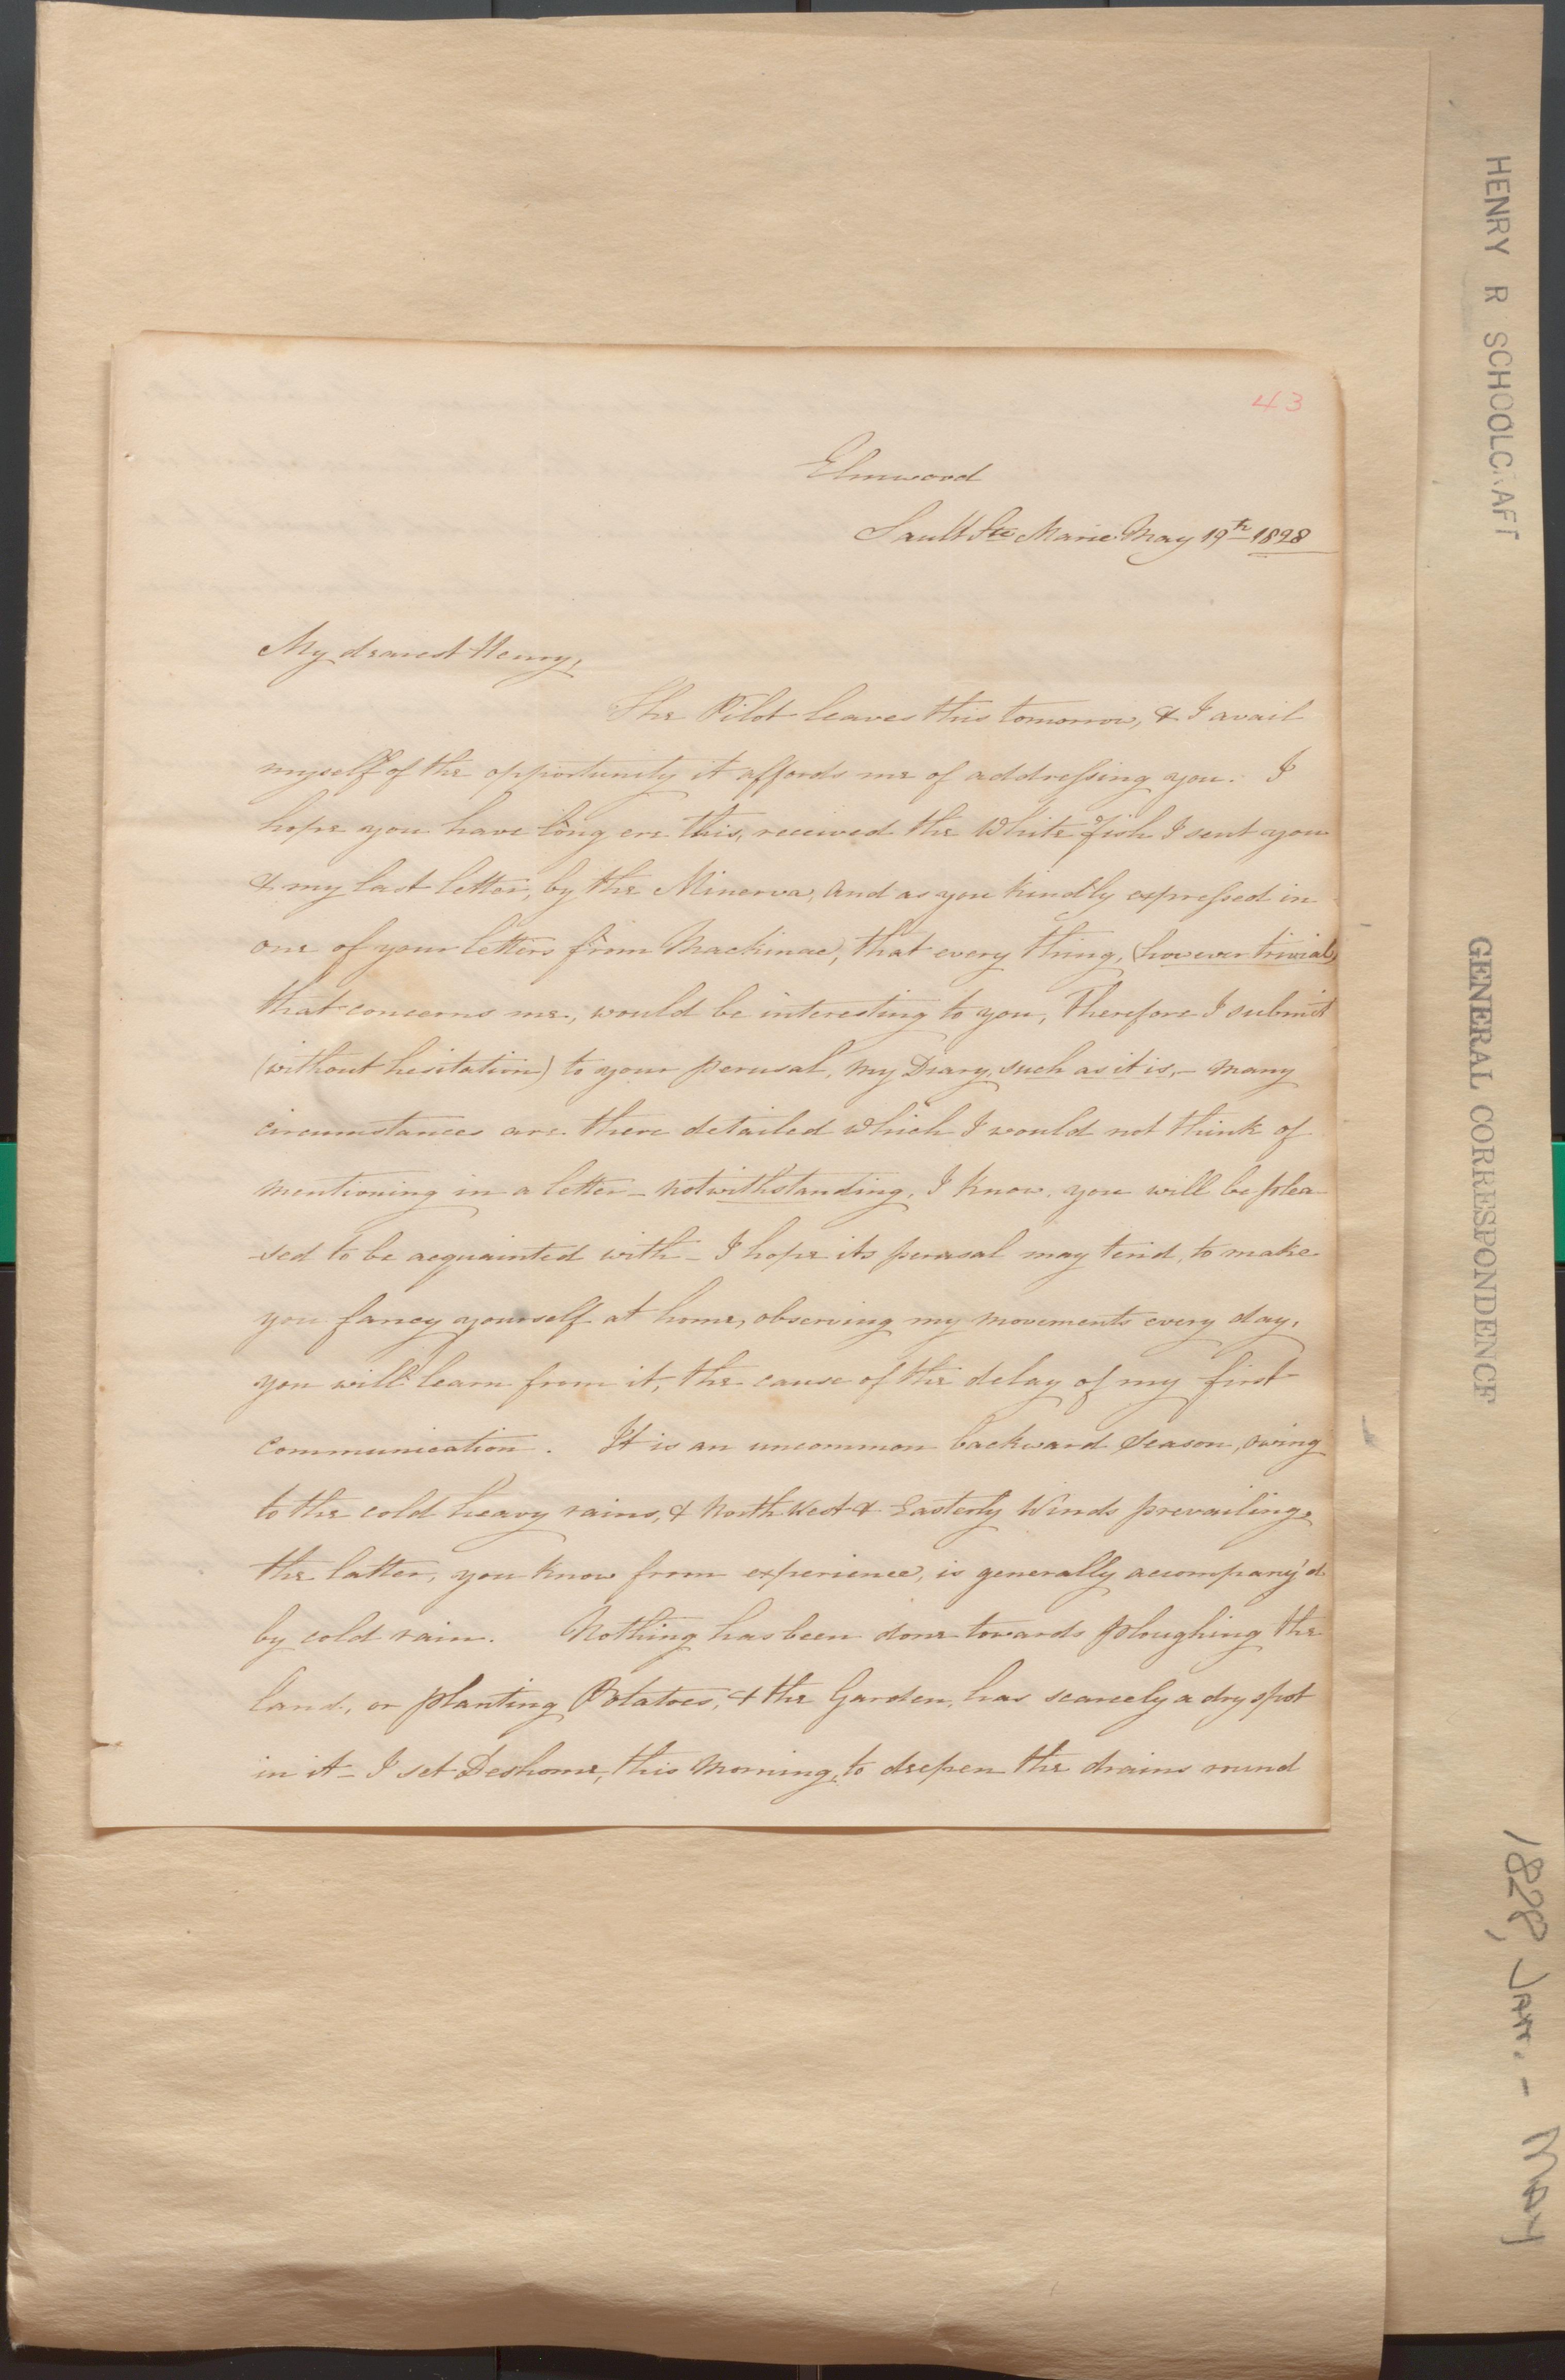 43
Elmwood
Sault Ste Marie May 19th 1828
My dearest Henry,
The Pilot leaves this tomorrow, & I avail
myself of the opportunity it affords me of addressing you. I
hope you have long ere this, received the White fish I sent you
& my last letter, by the Minerva, and as you kindly expressed in
one of your letters from Mackinac, that every thing, (however trivial)
that concerns me, would be interesting to you, Therefore I submit
(without hesitation) to your perusal, my Diary, such as it is, - many
circumstances are there detailed which I would not think of
mentioning in a letter - notwithstanding, I know, you will be plea
-sed to be acquainted with - I hope its perusal may tend, to make
you fancy yourself at home, observing my movements every day,
you will learn from it, the cause of the delay of my first
communication. It is an uncommon backward season, owing
to the cold heavy rains, & North West & Easterly Winds prevailing,
the latter, you know from experience, is generally accompany'd
by cold rain. Nothing has been done towards ploughing the
land, or planting Potatoes, & the Garden, has scarcely a dry spot
in it - I set Deshome, this morning, to deepen the drains round
HENRY R SCHOOLCRAFT
GENERAL CORRESPONDENCE
1828, JAN. - MAY